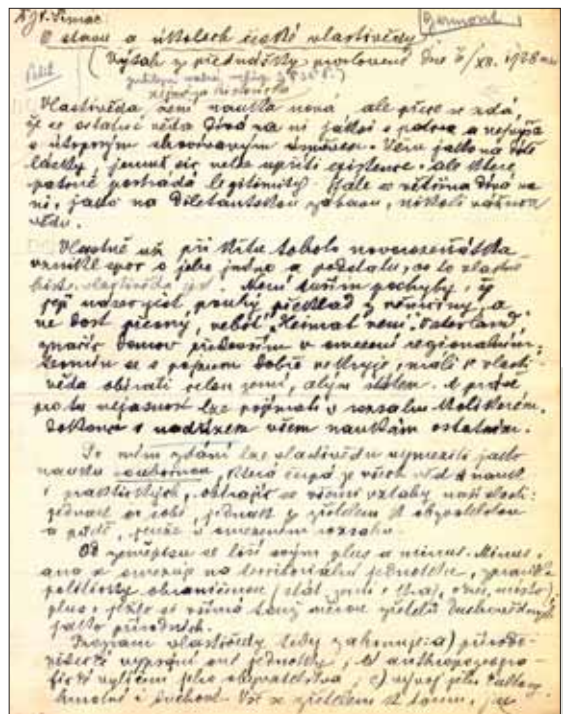 Šimac
O stavu a úkolech české vlastivědy
(Výtah z přednášky proslovené dne 6/XII. 1928
Vlastivěda není nauka nová ale přece se zdá,
že se ostatní věda dívá na ni jaksi s patra a nejvýše
s útrpným shovívavým úsměvem. Věru jako na dítě
lásky, jemuž sic nelze upříti existence, ale které
patrně postrádá legitimity. Vale se většina dívá na
ni, jako na diletantskou zábavu, nikoli vážnou
vědu.
Vlastně už při křtu tohoto novorozeňátka
vznikl spor o jeho jméno a podstatu, co to vlastně
vlastivěda jest. Není tuším pochyby, iž
její název jest pouhý překlad z němčiny, a
ne dost přesný, neboť "Heimat není Vaterland",
značíc domov především v omezení regionálním:
termín se s pojmem dobře nekryje, má-li se vlasti-
věda obírati celou zemí, ba celým státem. A právě
pro tu nejasnost lze pojímati v rozsahu kolikerém,
dokonce i nadřízeném všem naukám ostatním.
Po mém zdání lze vlastivědu vymeziti jako
nauku soubornou, která čerpá ze všech věd a nauk
i praktických, obírajíc se všemi vztahy naší vlasti:
jednak se zřetelem k obyvatelstvu
a půdě, pouze v omezeném rozsahu.
Od zeměpisu se liší svým plus a minus. Minus,
ano se omezuje na teritoriální jednotku, zpravidla
politicky ohraničenou (stát, zemi, kraj, okres, město),
plus, ježto si všímá touž měrou zřetelů duchovědných
jako přírodních.
Program vlastivědy tedy zahrnuje: a) přírodo-
vypsání oné jednotky, b) anthropogeogra-
fické vylíčení jeho obyvatelstva, c) vývoj jeho kultury
hmotné i duchové. Vše se zřetelem k tomu, jak